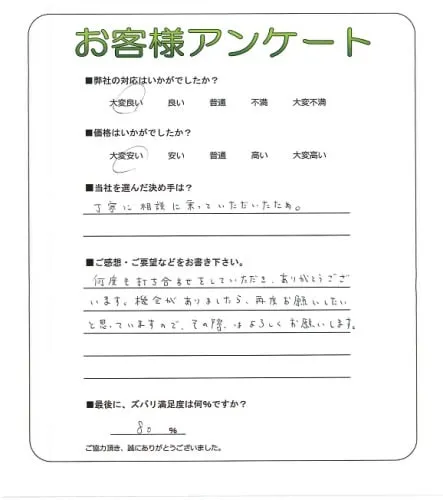 お客様アンケート
■弊社の対応はいかがでしたか?
大変良い 良い 普通 不満 大変不満
■価格はいかがでしたか?
大変安い 安い 普通 高い 大変高い
■当社を選んだ決め手は?
丁寧に相談に乗っていただいたため。
■ご感想・ご要望などをお書き下さい。
何度も打ち合わせをしていただき、ありがとうござ
います。機会がありましたら、再度お願いしたい
と思っていますので、その際、はよろしくお願いします。
■最後に、ズバリ満足度は何%ですか?
80 %
ご協力頂き、誠にありがとうございました。